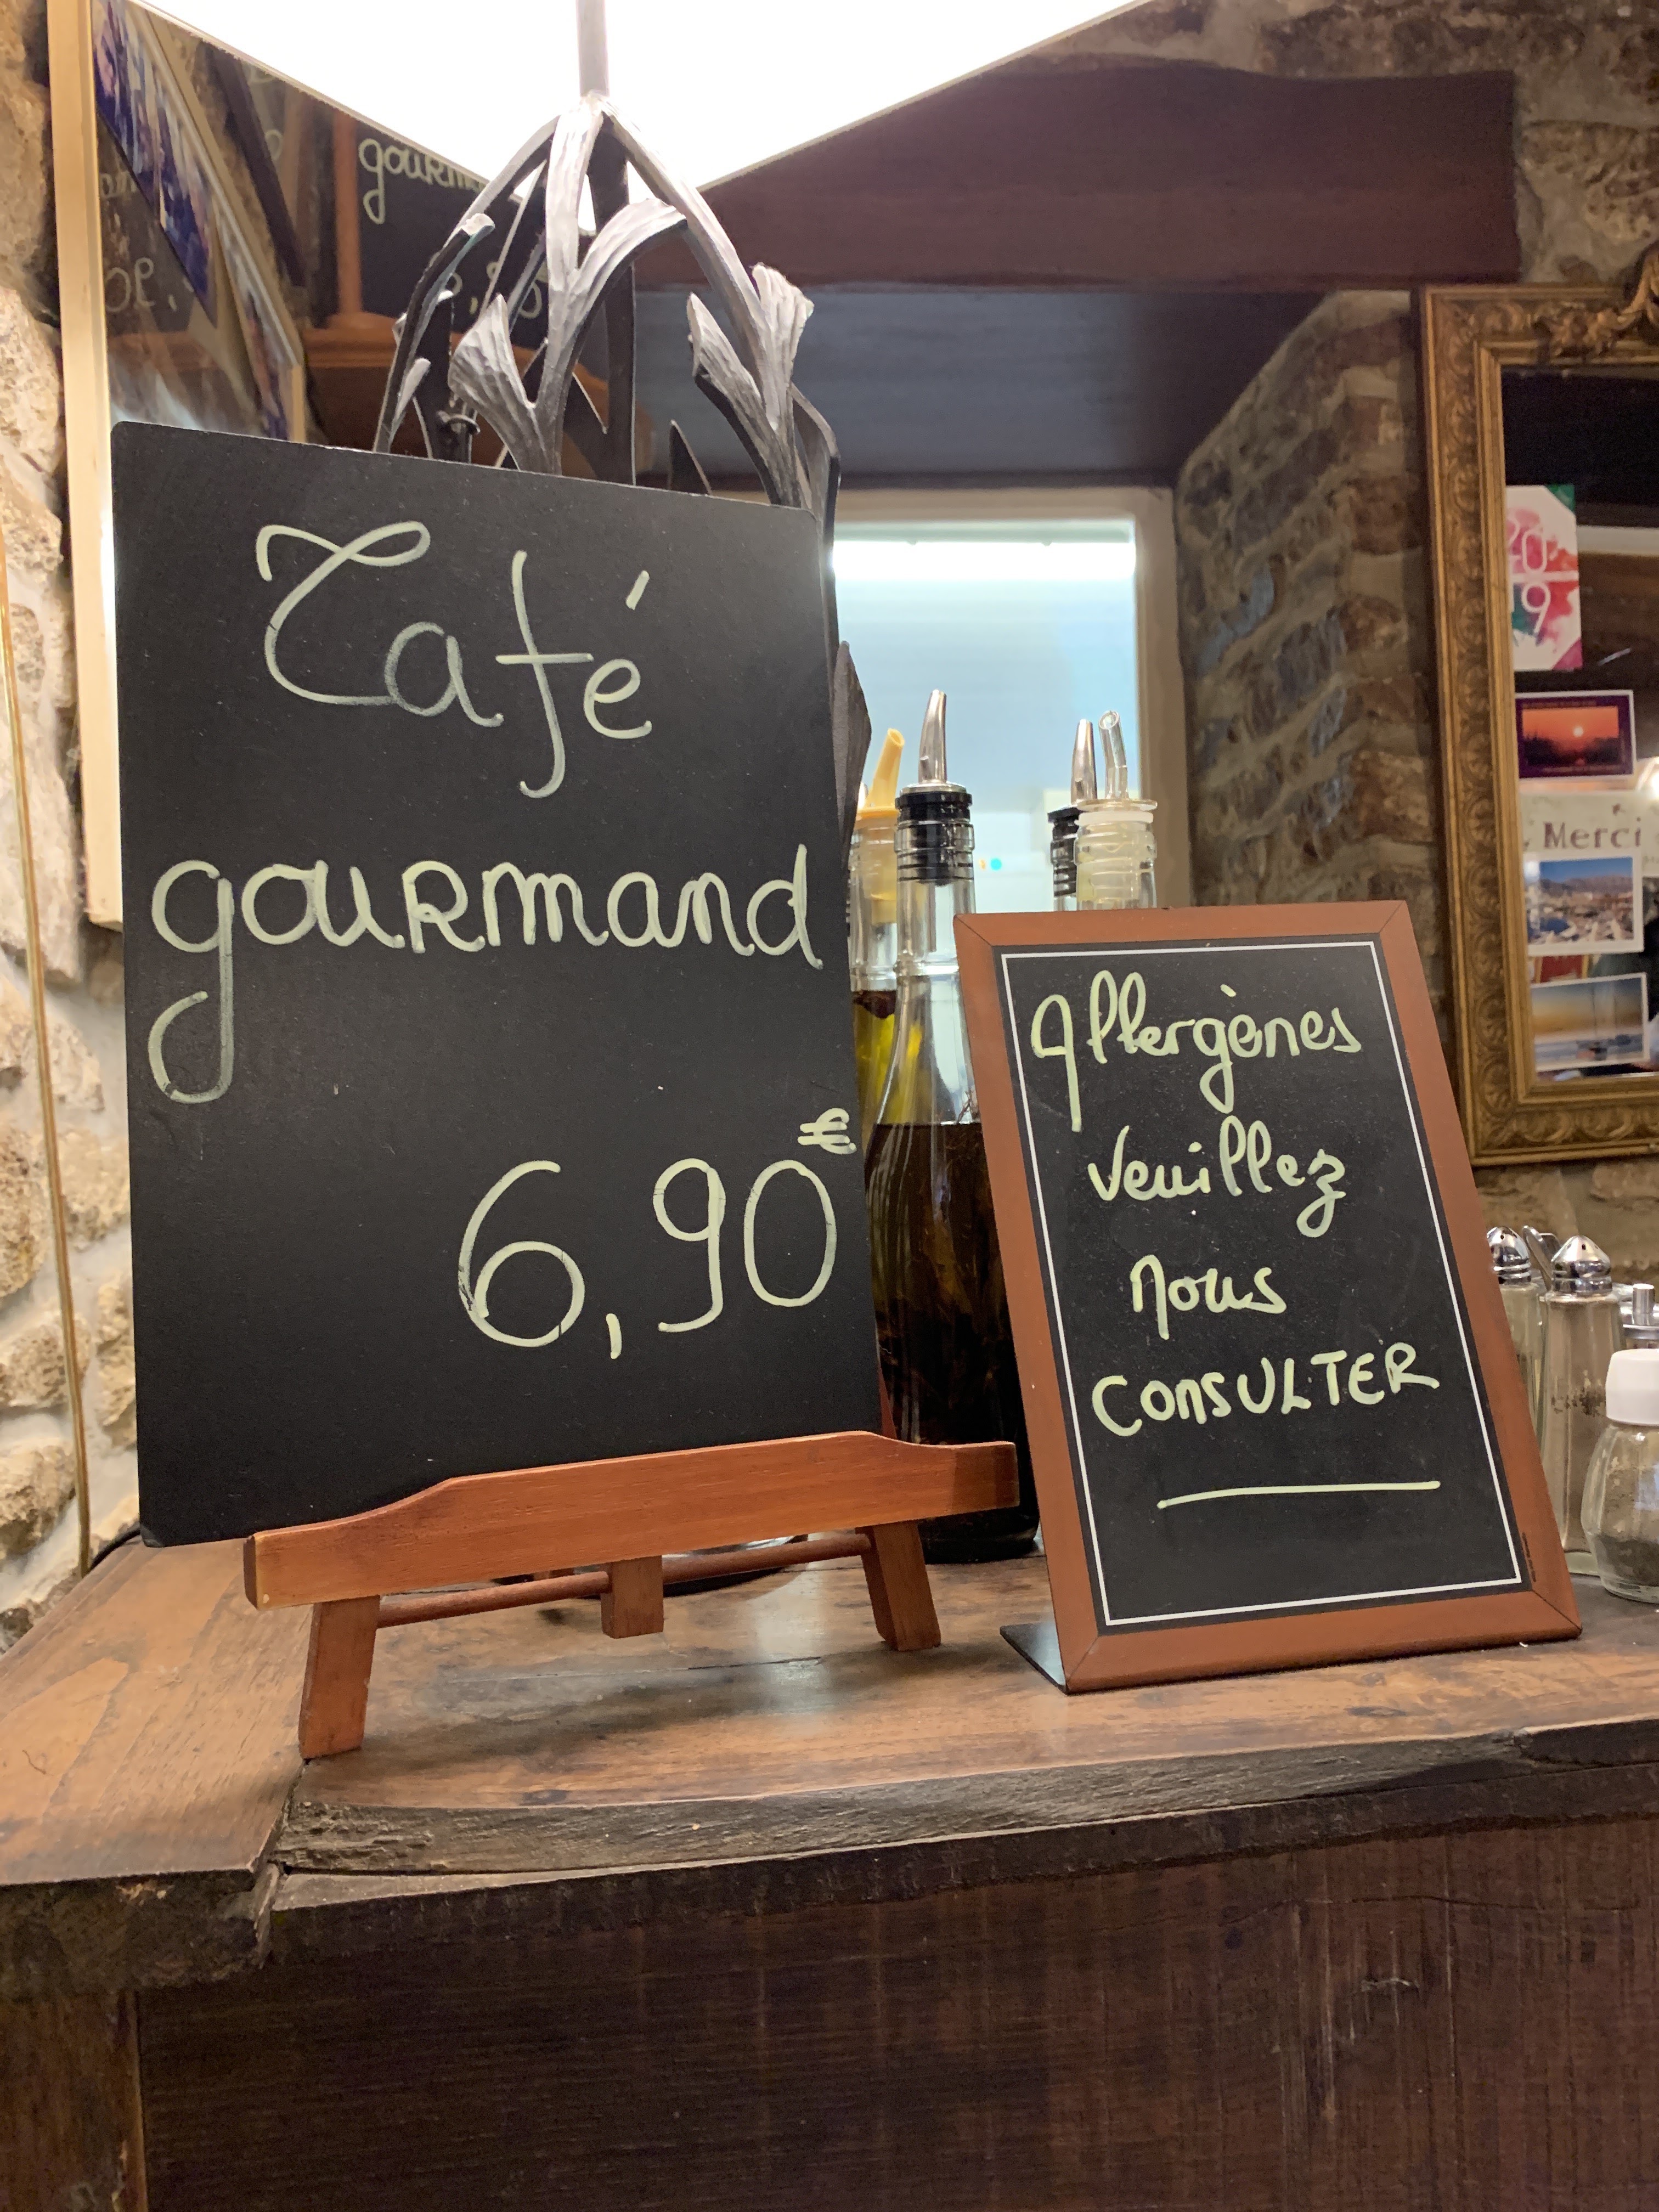 Café
gourmand
6,90€
Allergènes
Veuillez
nous
CONSULTER
gourm
20
19
Merci